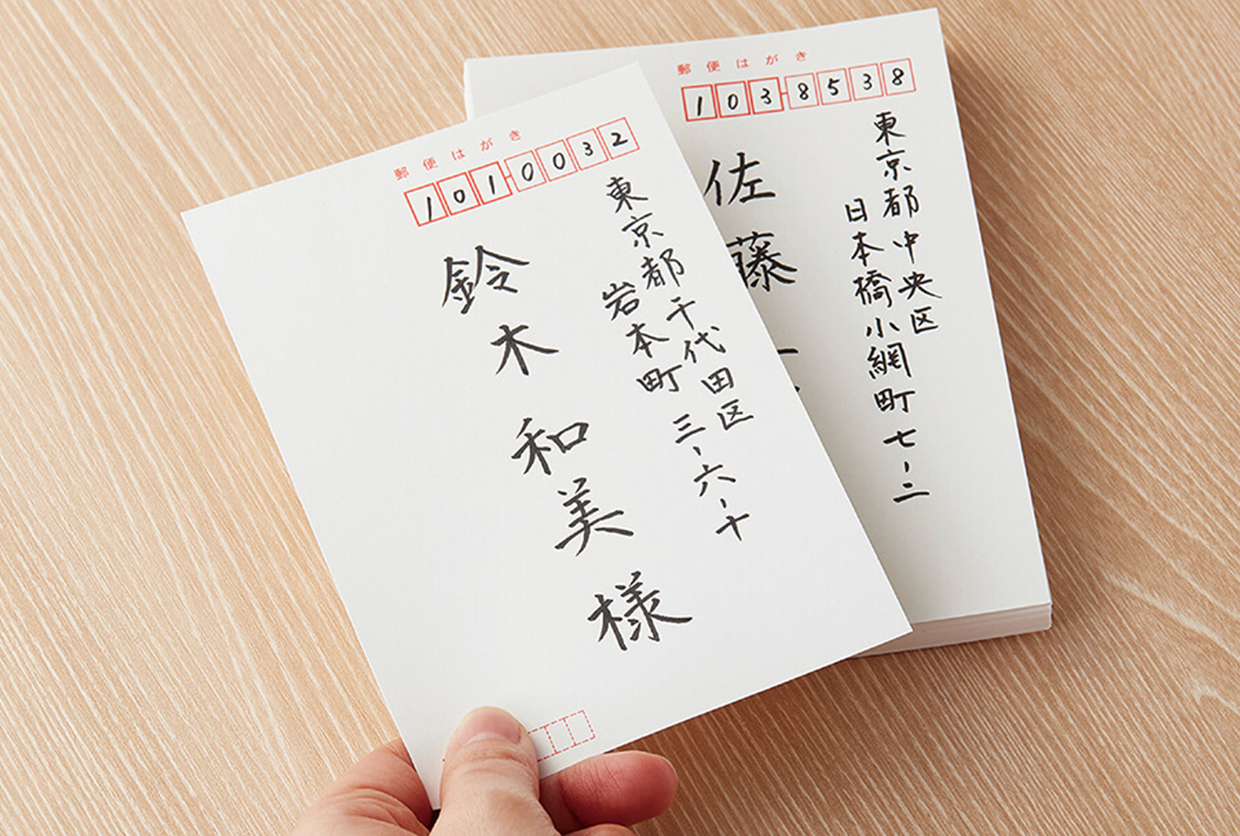 郵便はがき
1010032
東京都千代田区
岩本町 三-六-十
鈴木 和美 様
郵便はがき
1038538
東京都中央区
日本橋小網町 七-二
佐藤